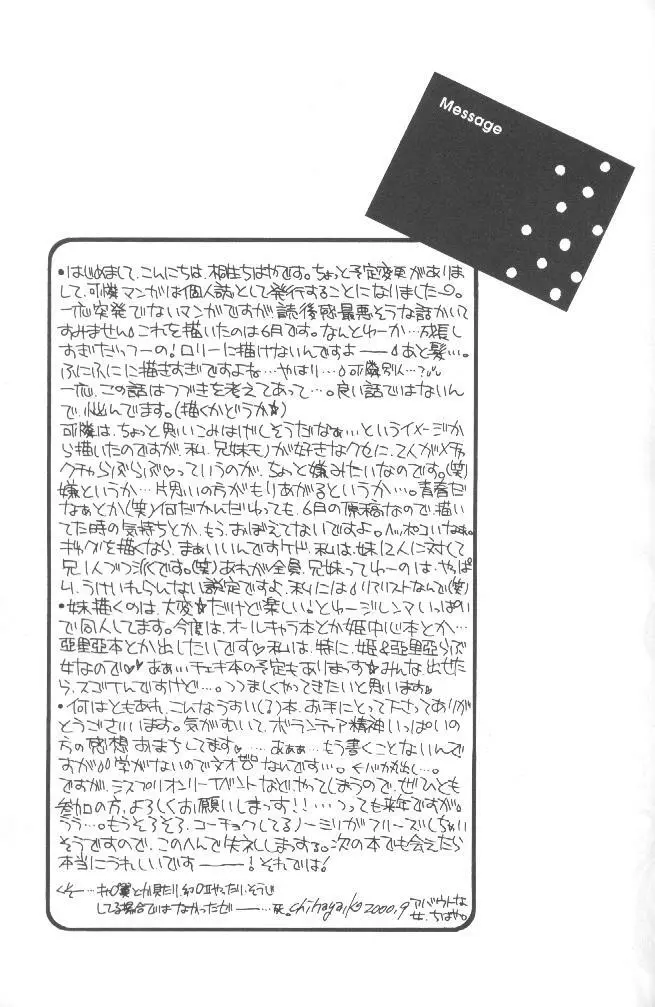 Message
・はじめまして、こんにちは、相生ちはやです。ちょっと予定変更がありま
して、可憐マンガは個人誌として発行することになりました〜。
一応突発でないマンガですが、読後感最悪そうな話かいて
すみません。これを描いたのは6月です。なんとゆーか…成長し
すぎだっつーの!ロリーに描けないんですよ――あと髪…。
ふにふにに描きすぎですよね…やはり…可憐別人…?
一応、この話はつづきを考えてあって…。良い話ではないん
で、悩んでます。(描くかどうか☆)
可憐は、ちょっと思いこみはげしそうだなぁ…というイメージか
ら描いたのですが、私、兄妹モノが好きなクセに、2人がメチャ
クチャらぶらぶ♡っていうのが、ちょっと嫌みたいなのです。(笑)
嫌というか…片思いの方がもりあがるというか…。青春だ
なぁとか(笑)何だかんだいっても、6月の原稿なので、描い
てた時の気持ちとか、もう、おぼえてないですよ。ヘッポコいなぁ。
ギャグを描くなら、まぁいいんですケド、私は、妹12人に対して
兄1人づつ派です。(笑)あれが全員、兄妹ってゆーのは、やっぱ
り、うけいれらんない設定ですよ、私には リアリストなんで(笑)
・妹描くのは、大変☆だけど楽しい!とゆージレンマいっぱい
で同人してます。今度は、オールキャラ本とか姫中心本とか…
亜里亜本とか出したいです♡私は、特に、姫&亜里亜らぶ
女なので♡♡あぁぃチェキ本の予定もありまっす☆みんな出せた
ら、スゴイんですけど…。つつましくやってきたいと思います♡
・何はともあれ、こんなうすい(?)本、お手にとって下さってありが
とうございます。気がむいて、ボランティア精神いっぱいの
方の感想おまちしてます♡……あぁぁ…もう書くことないんで
すが 学がないので文才ゼロなんです…。←バカ丸出し…。
ですが、ミスプリオンリーイベントなどやってしまうので、ぜひとも
参加の方、よろしくお願いしまっす!!…つっても来年ですが。
うう…。もうそろそろ、コーチョクしてるノーミソがフリーズしちゃい
そうですので、このへんで失礼しまっする。次の本でも会えたら
本当にうれしいです――!それでは!
くそー…とか見たり、やったり、そうじ
してる場合ではなかったぜ――…死。chihaya 2000.9 アバウトな
女、ちはや。